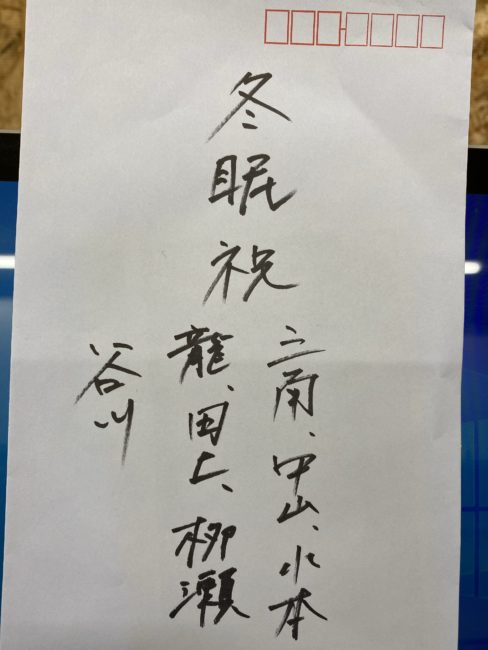 冬眠祝
三角、中山、水本
龍、田上、柳瀬
谷川